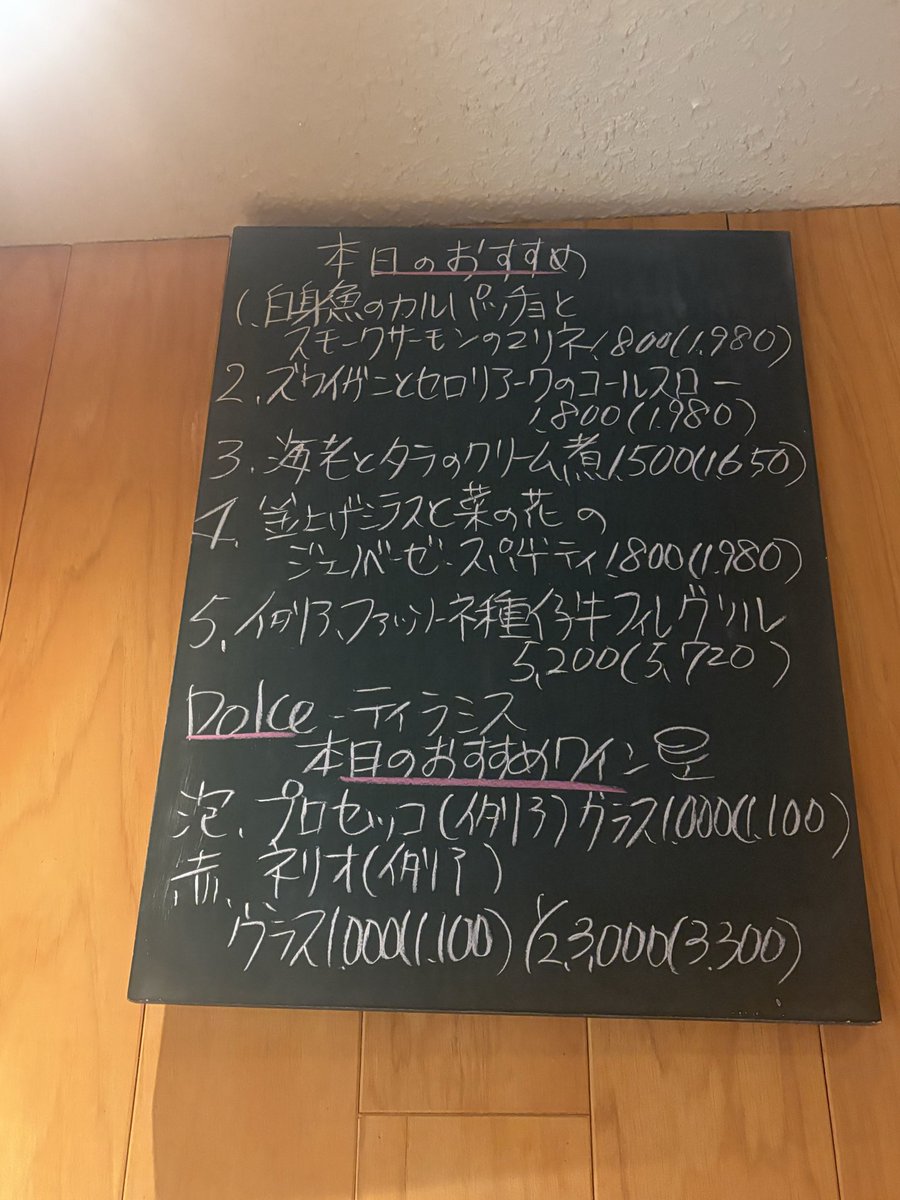 本日のおすすめ
1.白身魚のカルパッチョと
スモークサーモンのマリネ1.800(1.980)
2.ズワイガニとセロリアークのコールスロー
1.800(1.980)
3.海老とタラのクリーム煮1.500(1.650)
4.釜上げシラスと菜の花の
ジェノベーゼ・スパゲティ1.800(1.980)
5.イタリア、ファッソーネ種仔牛フィレグリル
5,200(5,720)
Dolce-ティラミス
本日のおすすめワイン
泡、プロセッコ(イタリア)グラス1.000(1.100)
赤、ネリオ(イタリア)
グラス1.000(1.100)1/2 3,000(3.300)